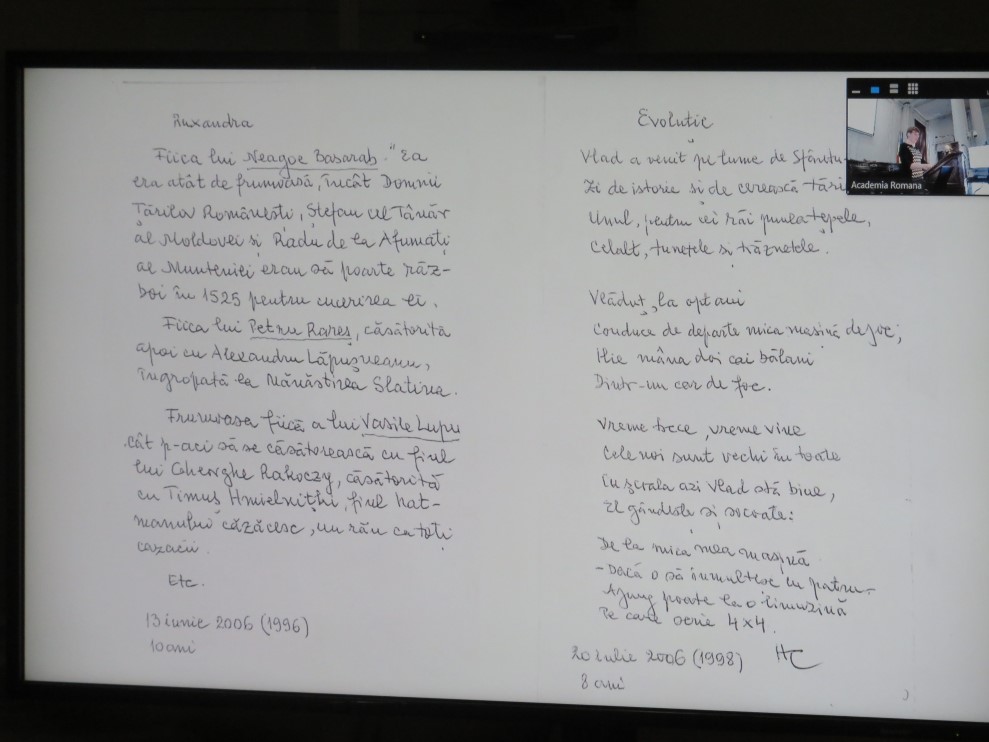 Ruxandra
Fiica lui Neagoe Basarab. "Ea
era atât de frumoasă, încât Domnii
Țărilor Românești, Ștefan cel Tânăr
al Moldovei și Radu de la Afumați
al Munteniei erau să poarte răz-
boi în 1525 pentru cucerirea ei.
Fiica lui Petru Rareș, căsătorită
apoi cu Alexandru Lăpușneanu,
îngropată la Mănăstirea Slatina.
Frumoasa fiică a lui Vasile Lupu
cât p-aci să se căsătorească cu fiul
lui Gheorghe Rakoczy, căsătorită
cu Timuș Hmielnițhi, fiul hat-
manului căzăcesc, un rău ca toți
cazacii.
Etc.
13 iunie 2006 (1996)
10 ani
Evoluție
Vlad a venit pe lume de Sfântu
Zi de istorie și de cerească tări
Unul, pentru cei răi punea țepele,
Celalt, tunetele și trăznetele.
Vlăduț, la opt ani
Conduce de departe mica mașină de joc;
Ilie mâna doi cai bălani
Dintr-un car de foc.
Vreme trece, vreme vine
Cele noi sunt vechi în toate
Cu școala azi Vlad stă bine,
El gândește și socoate:
De la mica mea mașină
-Dacă o să înmulțesc cu patru-
Ajung poate la o limuzină
Pe care scrie 4x4.
20 iulie 2006 (1998) HC
8 ani
Academia Romana